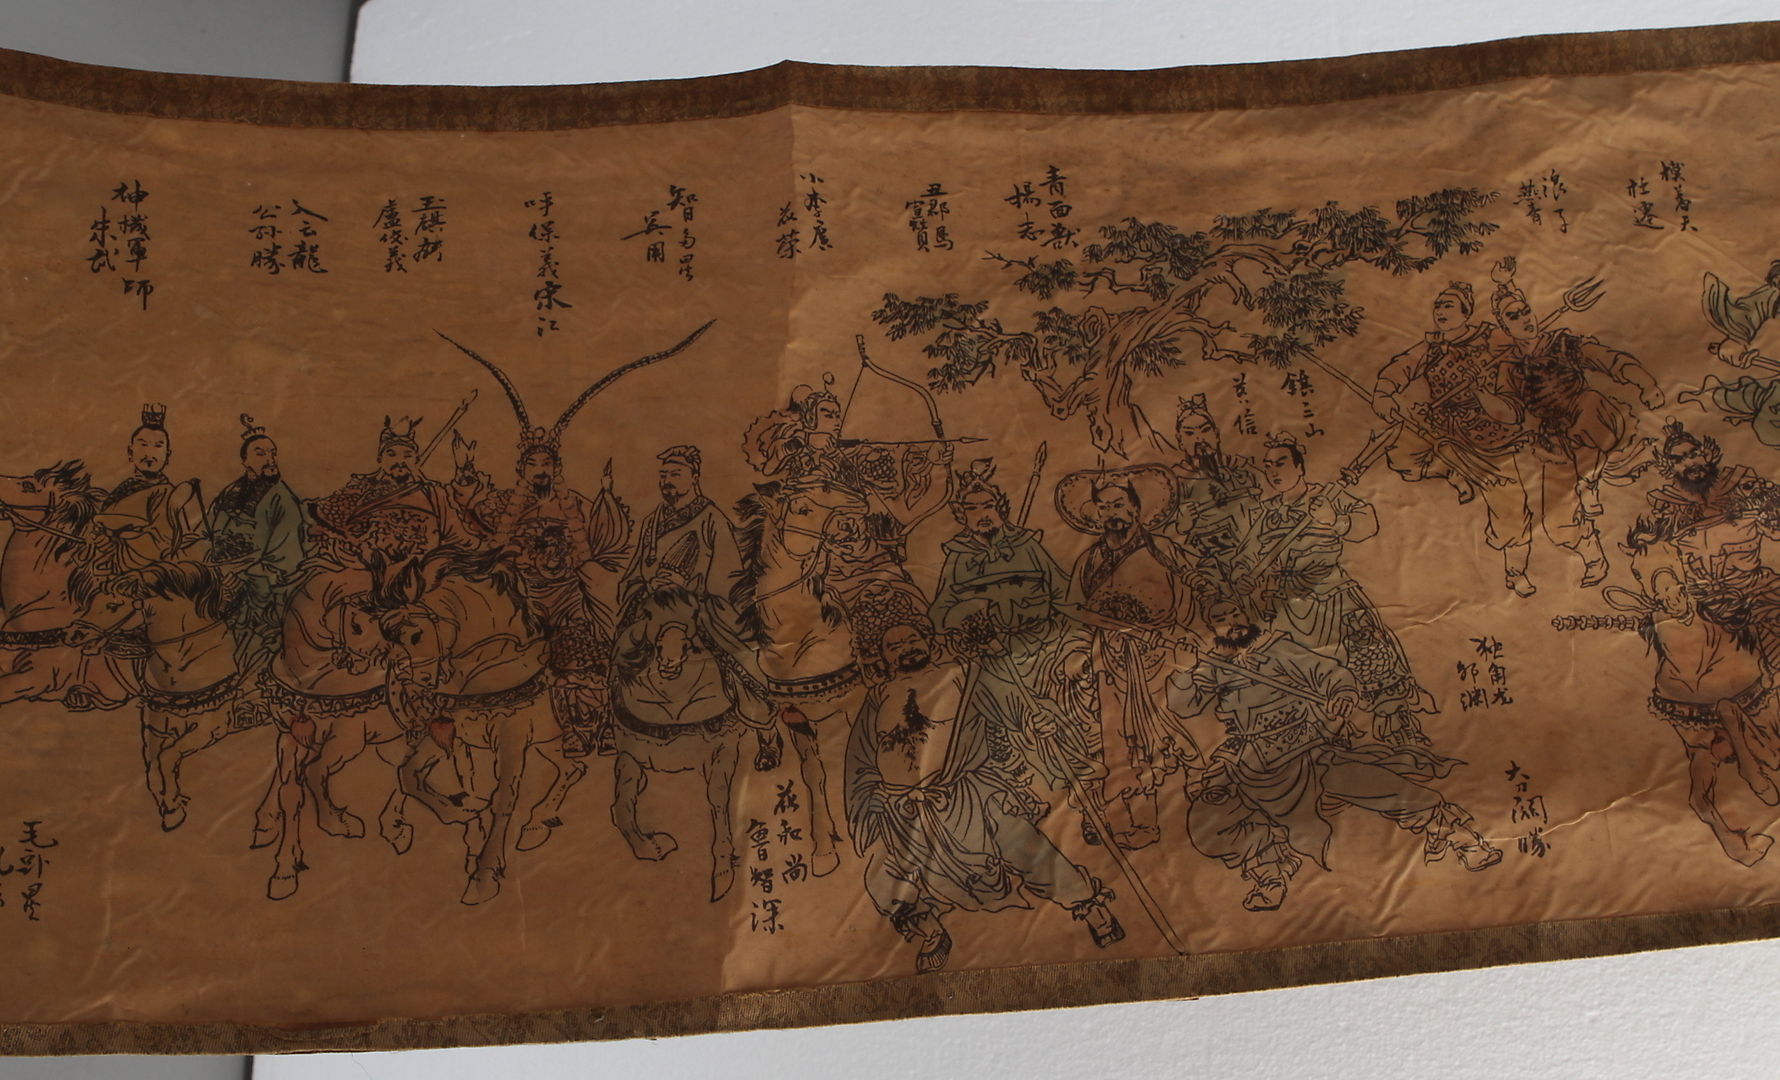 摸着天
杜迁
浪子
燕青
青面獸
楊志
丑郡馬
宣贊
小李廣
花榮
智多星
吳用
呼保義宋江
玉麒麟
盧俊義
入云龍
公孫勝
神機軍師
朱武
鎮三山
黄信
独角龙
邹渊
大刀關勝
花和尚
魯智深
毛頭星